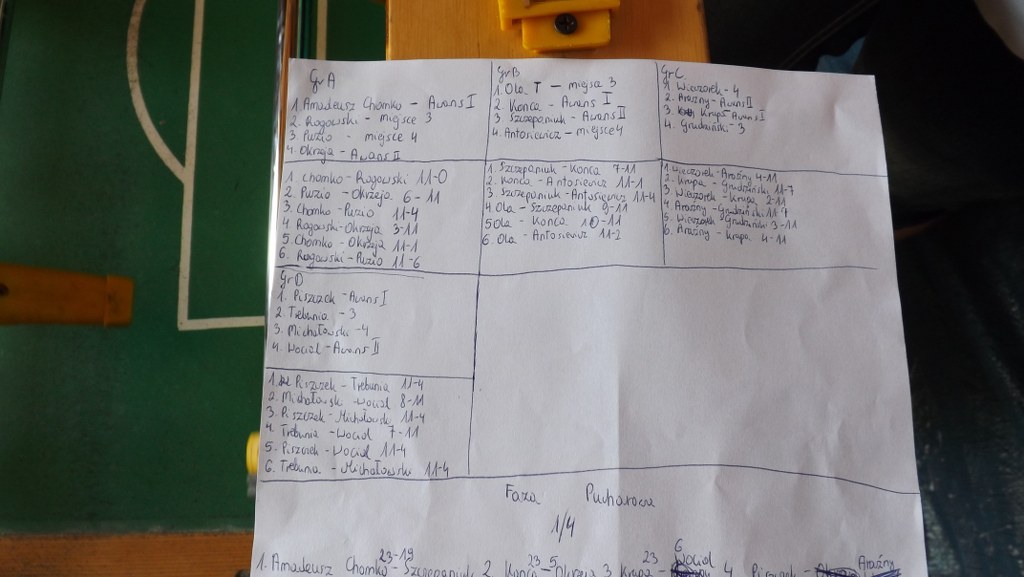 Gr A
1. Amadeusz Chomko - Awans I
2. Rogowski - miejsce 3
3 Puzio - miejsce 4
4. Okrzeja - Awans II
1. Chomko - Rogowski 11-0
2. Puzio - Okrzeja 6-11
3. Chomko - Puzio 11-4
4 Rogowski - Okrzeja 3-11
5. Chomko - Okrzeja 11-1
6. Rogowski - Puzio 11-6
Gr B
1. Ola T - miejsce 3
2. Konca - Awans I
3 Szczepaniuk - Awans II
4. Antosiewicz - miejsce 4
1. Szczepaniuk - Konca 7-11
2. Konca - Antosiewicz 11-1
3 Szczepaniuk - Antosiewicz 11-4
4 Ola - Szczepaniuk 9-11
5 Ola - Konca 10-11
6. Ola - Antosiewicz 11-2
Gr C
1. Wieczorek - 4
2. Araźny - Awans II
3. Krupa - Awans I
4. Grudziński - 3
1. Wieczorek - Araźny 4-11
2. Krupa - Grudziński 11-7
3. Wieczorek - Krupa 2-11
4 Araźny - Grudziński 11-7
5. Wieczorek - Grudziński 3-11
6. Araźny - Krupa 4-11
Gr D
1. Piszczek - Awans I
2. Trebunia - 3
3. Michałowski - 4
4. Wocial - Awans II
1. Piszczek - Trebunia 11-4
2. Michałowski - Wocial 8-11
3. Piszczek - Michałowski 11-4
4. Trebunia - Wocial 7-11
5. Piszczek - Wocial 11-4
6. Trebunia - Michałowski 11-4
Faza Pucharowa
1/4
23-19 23-5 23 6
1. Amadeusz Chomko - Szczepaniuk 2 Konca - Okrzeja 3 Krupa - Wocial 4 Piszczek - Araźny